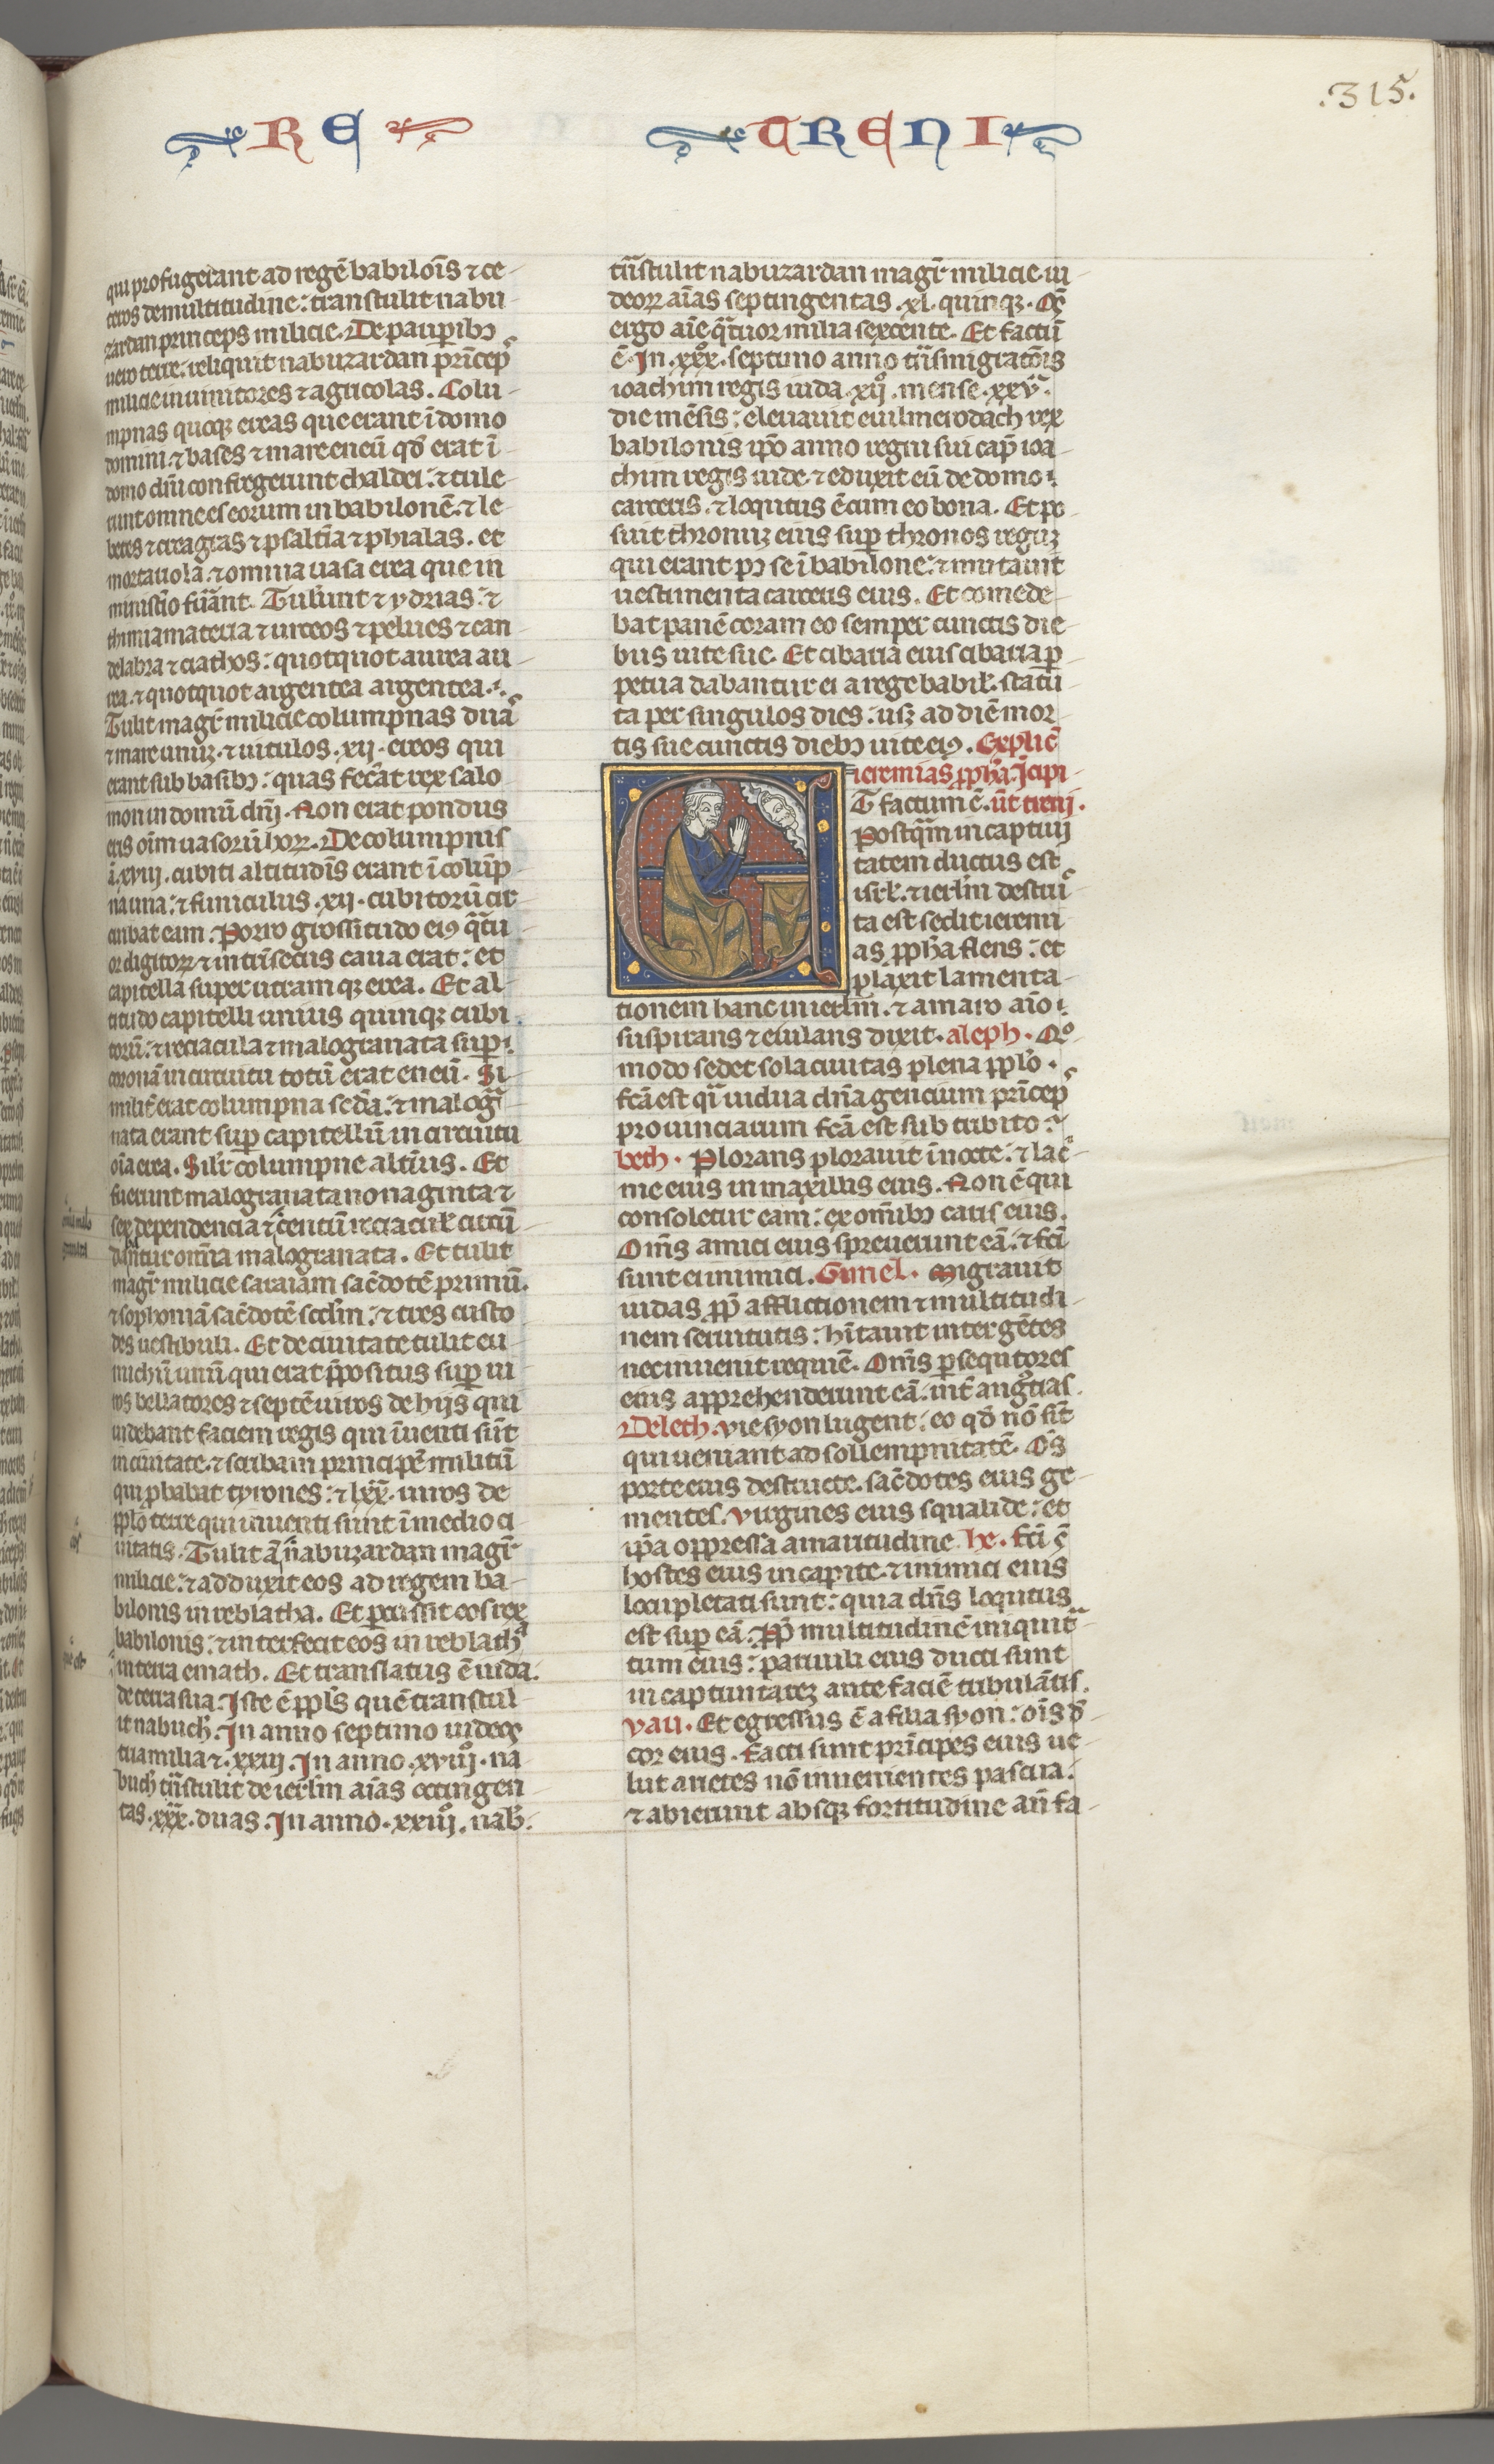 .315.
RE
TRENI
qui profugerant ad regē babilōis ⁊ ce-
teros de multitudine: transtulit nabu-
zardan princeps milicie. De paupib⁊
uero terre: reliquit nabuzardan pⁱncep̄
milicie in uinitores ⁊ agricolas. Colu-
mpnas quoq⁊ ereas que erant ī domo
domini ⁊ bases ⁊ mare eneū qđ erat ī-
domo dn̄i confregerunt chaldei: ⁊ tule-
runt omne es eorum in babilonē. ⁊ le-
betes ⁊ creagras ⁊ psaltⁱa ⁊ phialas. et
mortariola. ⁊ omnia uasa erea que in
ministⁱo fuānt. Tulūnt ⁊ ydrias: ⁊
thimiamateria ⁊ urceos ⁊ pelues ⁊ can
delabra ⁊ ciathos: quotquot aurea au-
rea. ⁊ quotquot argentea argentea.
Tulit magr̄ milicie columpnas duas
⁊ mare unu⁊. ⁊ uitulos .xij. ereos qui
erant sub basib⁊: quas fecāt rex salo
mon in domū dn̄i. Non erat pondus
eris oīm uasorū hoꝝ. De columpnis
ā .xviij. cubiti altitudīs erant ī colūp-
na una: ⁊ funiculus .xij. cubitorū cir
cūibat eam. Porro grossitudo eiꝰ qᵃtu
or digitoꝝ ⁊ intⁱsecus caua erat: et
capitella super utramq⁊ erea. Et al-
titudo capitelli unius quinq⁊ cubi
torū: ⁊ reciacula ⁊ malogranata suꝑ
coronā in circuitu totū erat eneū. Si-
milit̄ erat columpna sedā: ⁊ malogᵃ
nata erant suꝑ capitellū in circuitu
oīa erea. Silr̄ columpne altⁱus. Et
fuerunt malogranata nonaginta ⁊
sex dependencia ⁊ centū reciaculꝭ circū
dabāntur omīa malogranata. Et tulit
magr̄ milicie saraiam sac̄dotē primū.
⁊ sophoniā sac̄dotē sc̄dm: ⁊ tres custo
des uestibuli. Et de ciuitate tulit eu-
nuchū unū qui erat p̄positus suꝑ ui
ros bellatores ⁊ septē uiros de hijs qui
uidebant faciem regis qui īuenti sūt
in ciuitate. ⁊ scribam principē militū
qui ꝓbabat tyrones: ⁊ lxx. uiros de
pplo terre qui inuenti sunt ī medio ci
uitatis. Tulit ā nabuzardan magr̄
milicie: ⁊ adduxit eos ad regem ba-
bilonis in reblatha. Et ꝑcussit eos rex
babilonis: ⁊ interfecit eos in reblathᵃ
in terra emath. Et translatus ē iuda.
de terra sua: Iste ē ppl's quē transtul-
it nabuch. In anno septimo iudeos
tria milia ⁊ .xxiij. In anno .xviij°. na
buch tⁿstulit de ierl̄m aīas octingen-
tas .xxx. duas. In anno .xxiij. nab.
tⁿstulit nabuzardan magr̄ milicie. iu-
deoꝝ aīas septingentas .xl. quinq⁊. Oēs
ergo aīe qᵃtuor milia sexcente. Et factū
ē. In .xxx. septimo anno tⁿsmigratōis
ioachim regis iuda .xij°. mense .xxv.
die mēsis: eleuauit euilmerodach rex
babilonis ip̄o anno regni sui cap̄ ioa-
chim regis iude. ⁊ eduxit eū de domo
carceris. ⁊ loqutus ē cum eo bona. Et po-
suit thronu⁊ eius suꝑ thronos regu⁊
qui erant pꝰ se ī babilone: ⁊ mutauit
uestimenta carceris eius. Et comede-
bat panē coram eo semper cunctis die-
bus uite sue. Et cibaria eius cibaria ꝑ
petua dabantur ei a rege babil̄. statu-
ta per singulos dies: usq⁊ ad diē mor-
tis sue cunctis dieb⁊ uite eiꝰ. Explic̄
ieremias ppha. Icipi-
T factum ē. ūt treni.
Postqᵃm in captiui
tatem ductus est
isrl̄. ⁊ ierl̄m destruc̄
ta est sedit ieremi
as ppha flens: et
planxit lamenta-
tionem hanc in ierl̄m. ⁊ amaro aīo
suspirans ⁊ eiulans dixit. aleph. Qo
modo sedet sola ciuitas plena pplo.
fcā est qᵃi uidua dn̄a gencium pⁱncep̄
prouinciarum fcā est sub tributo:
beth. Plorans plorauit ī nocte: ⁊ lacⁱ
me eius in maxillis eius. Non ē qui
consoletur eam: ex omīb⁊ caris eius.
Om̄s amici eius spreuerunt eā: ⁊ fc̄i
sunt ei inimici. Gimel. Migrauit
iudas ꝓp̄ afflictionem ⁊ multitudi-
nem seruitutis: hītauit inter gētes
nec inuenit requiē. Om̄s ꝑsequtores
eius apprehenderunt eā: int̄ angⁱstias.
Deleth. vie syon lugent: eo qđ nō sīt
qui ueniant ad sollempnitatē. Om̄s
porte eius destructe. sac̄dotes eius ge-
mentes. virgines eius squalide: et
ip̄a oppressa amaritudine he. fc̄i s̄
hostes eius in capite. ⁊ inimici eius
locupletati sunt: quia dn̄s loqutus
est suꝑ eā. ꝓp̄ multitudinē iniquit-
tum eius: paruuli eius ducti sunt
in captiuitate⁊ ante faciē tribulātis.
vau. Et egressus ē a filia syon: oīs đ-
cor eius. facti sunt prīcipes eius ue-
lut arietes nō inuenientes pascua:
⁊ abierunt absq⁊ fortitudine an̄ fa-